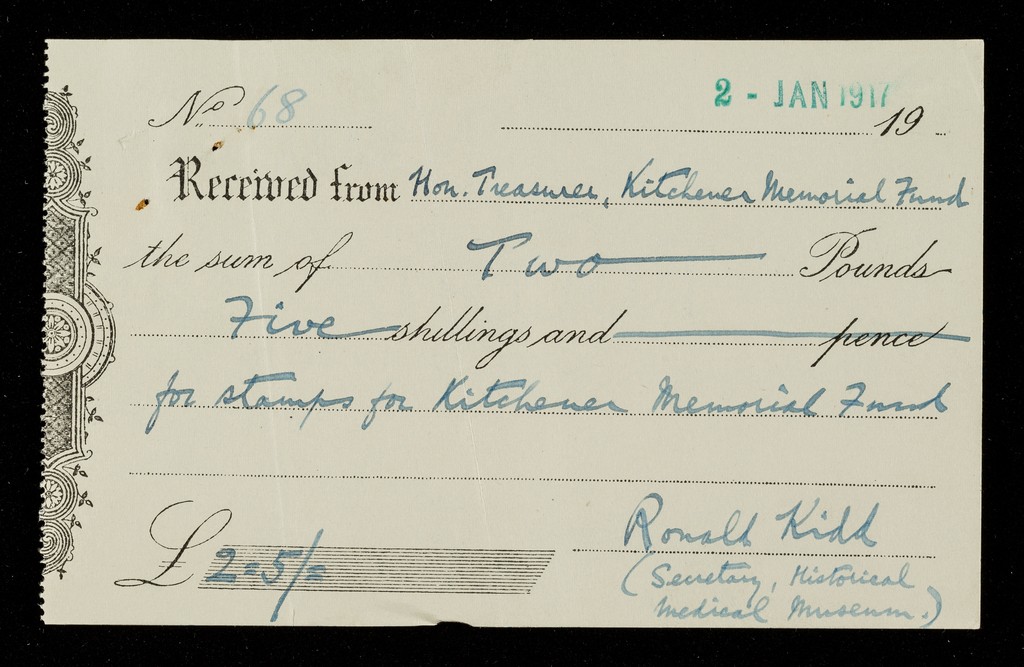 No. 68
2 - JAN 1917
19
Received from Hon. Treasurer, Kitchener Memorial Fund
the sum of Two Pounds
Five shillings and pence
for stamps for Kitchener Memorial Fund
£ 2-5/-
Ronald Kidd
(Secretary, Historical
Medical Museum.)